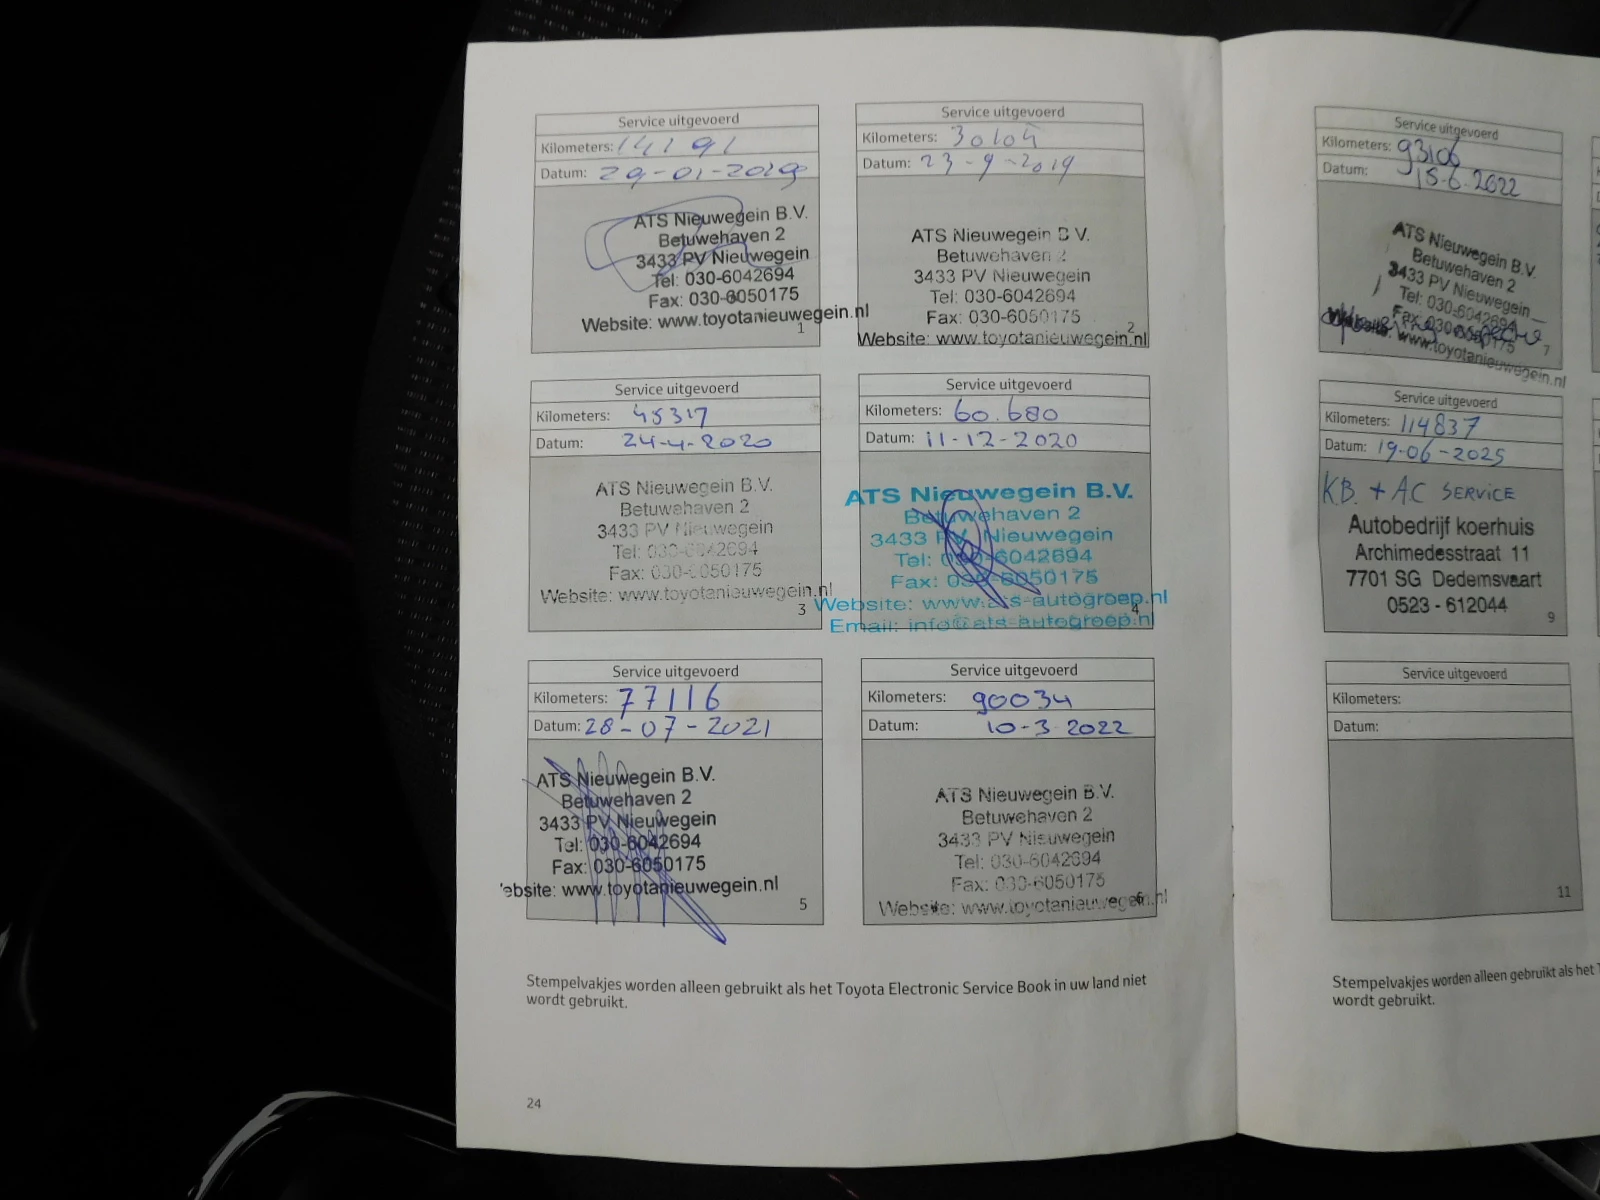 Service uitgevoerd
Kilometers: 14191
Datum: 29-01-2019
ATS Nieuwegein B.V.
Betuwehaven 2
3433 PV Nieuwegein
Tel: 030-6042694
Fax: 030-6050175
Website: www.toyotanieuwegein.nl
1
Service uitgevoerd
Kilometers: 30104
Datum: 23-9-2019
ATS Nieuwegein B.V.
Betuwehaven 2
3433 PV Nieuwegein
Tel: 030-6042694
Fax: 030-6050175
2
Website: www.toyotanieuwegein.nl
Service uitgevoerd
Kilometers: 45317
Datum: 24-4-2020
ATS Nieuwegein B.V.
Betuwehaven 2
3433 PV Nieuwegein
Tel: 030-6042694
Fax: 030-6050175
Website: www.toyotanieuwegein.nl
3
Service uitgevoerd
Kilometers: 60.680
Datum: 11-12-2020
ATS Nieuwegein B.V.
Betuwehaven 2
3433 PV Nieuwegein
Tel: 030-6042694
Fax: 030-6050175
Website: www.ats-autogroep.nl
4
Email: info@ats-autogroep.nl
Service uitgevoerd
Kilometers: 77116
Datum: 28-07-2021
ATS Nieuwegein B.V.
Betuwehaven 2
3433 PV Nieuwegein
Tel: 030-6042694
Fax: 030-6050175
ebsite: www.toyotanieuwegein.nl
5
Service uitgevoerd
Kilometers: 90034
Datum: 10-3-2022
ATS Nieuwegein B.V.
Betuwehaven 2
3433 PV Nieuwegein
Tel: 030-6042694
Fax: 030-6050175
Website: www.toyotanieuwegein.nl
6
Stempelvakjes worden alleen gebruikt als het Toyota Electronic Service Book in uw land niet
wordt gebruikt.
24
Service uitgevoerd
Kilometers: 93106
Datum: 15-6-2022
ATS Nieuwegein B.V.
Betuwehaven 2
3433 PV Nieuwegein
Tel: 030-6042694
Fax: 030-6050175
7
Website: www.toyotanieuwegein.nl
Service uitgevoerd
Kilometers: 114837
Datum: 19-06-2025
KB. + AC SERVICE
Autobedrijf koerhuis
Archimedesstraat 11
7701 SG Dedemsvaart
0523 - 612044
9
Service uitgevoerd
Kilometers:
Datum:
11
Stempelvakjes worden alleen gebruikt als het
wordt gebruikt.